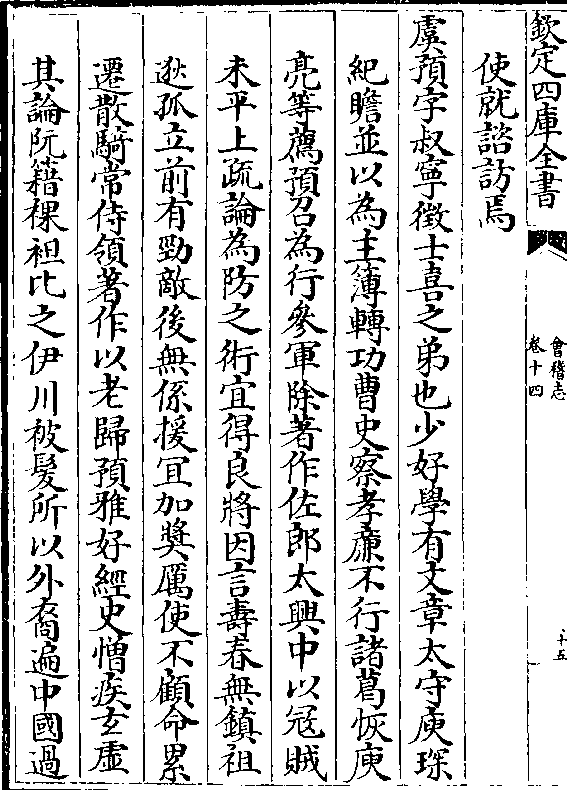 欽定四庫全書
會稽志
卷十四
十五
使就諮訪焉
虞預字叔寧徵士喜之弟也少好學有文章太守庾琛
紀瞻並以為主簿轉功曹史察孝廉不行諸葛恢庾
亮等薦預召為行參軍除著作佐郎太興中以冦賊
未平上疏論為防之術宜得良將因言壽春無鎮祖
逖孤立前有勁敵後無係援冝加奬厲使不顧命累
遷散騎常侍領著作以老歸預雅好經史憎疾玄虛
其論阮籍裸袒比之伊川被髮所以外裔遍中國過